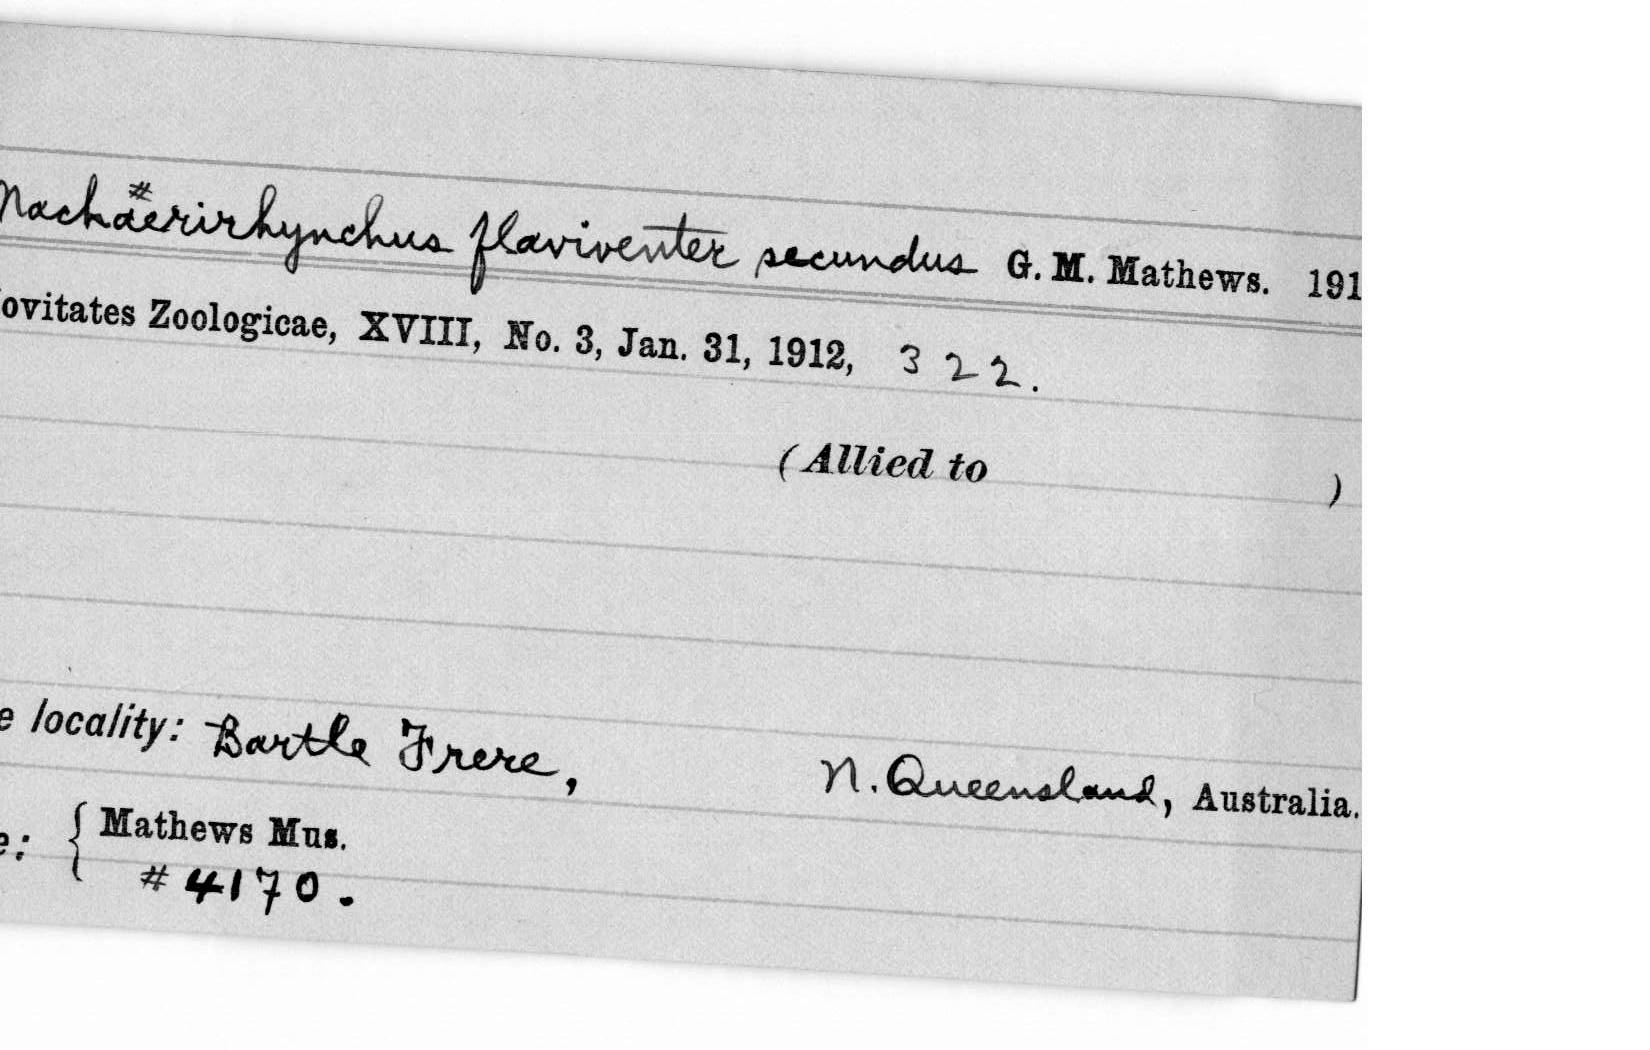 #
Machaerirhynchus flaviventer secundus G. M. Mathews. 191
ovitates Zoologicae, XVIII, No. 3, Jan. 31, 1912, 322.
(Allied to )
e locality: Bartle Frere, N. Queensland, Australia.
e: { Mathews Mus.
# 4170.